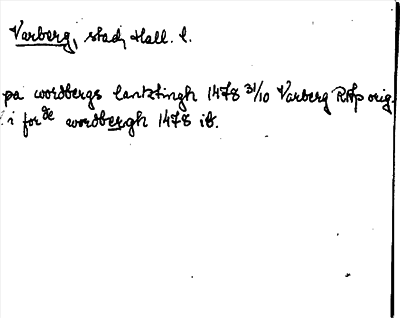 Varberg, stad, Hall. l.
pa wordbergs lantztingh 1478 31/10 Varberg RAp orig.
i for de wordbergh 1478 ib.